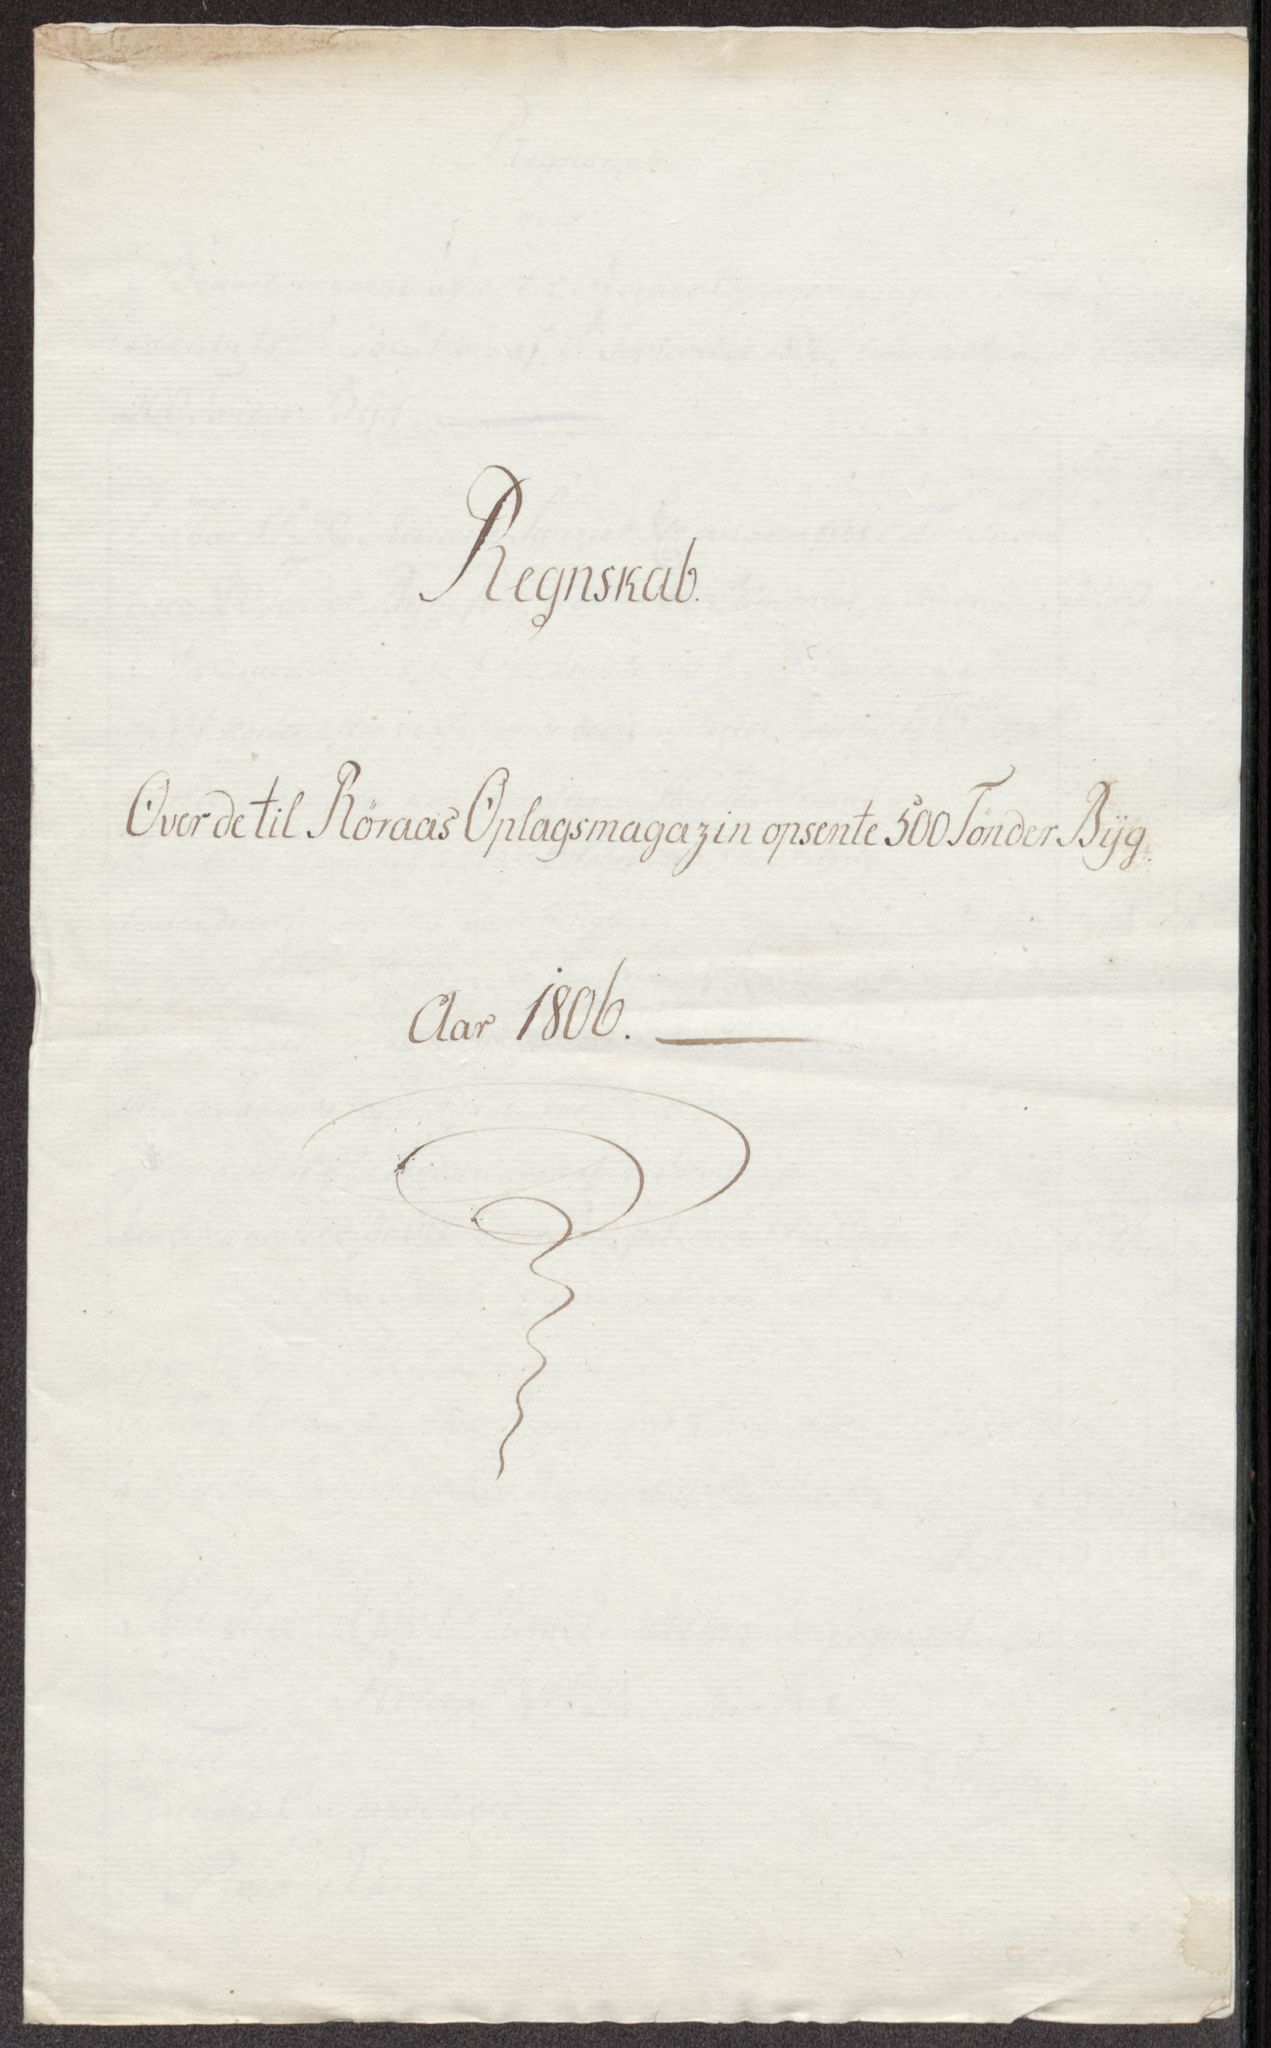 Regnskab.
Over de til Röraas Oplagsmagazin opsente 500 Tønder Bÿg.
Aar 1806.